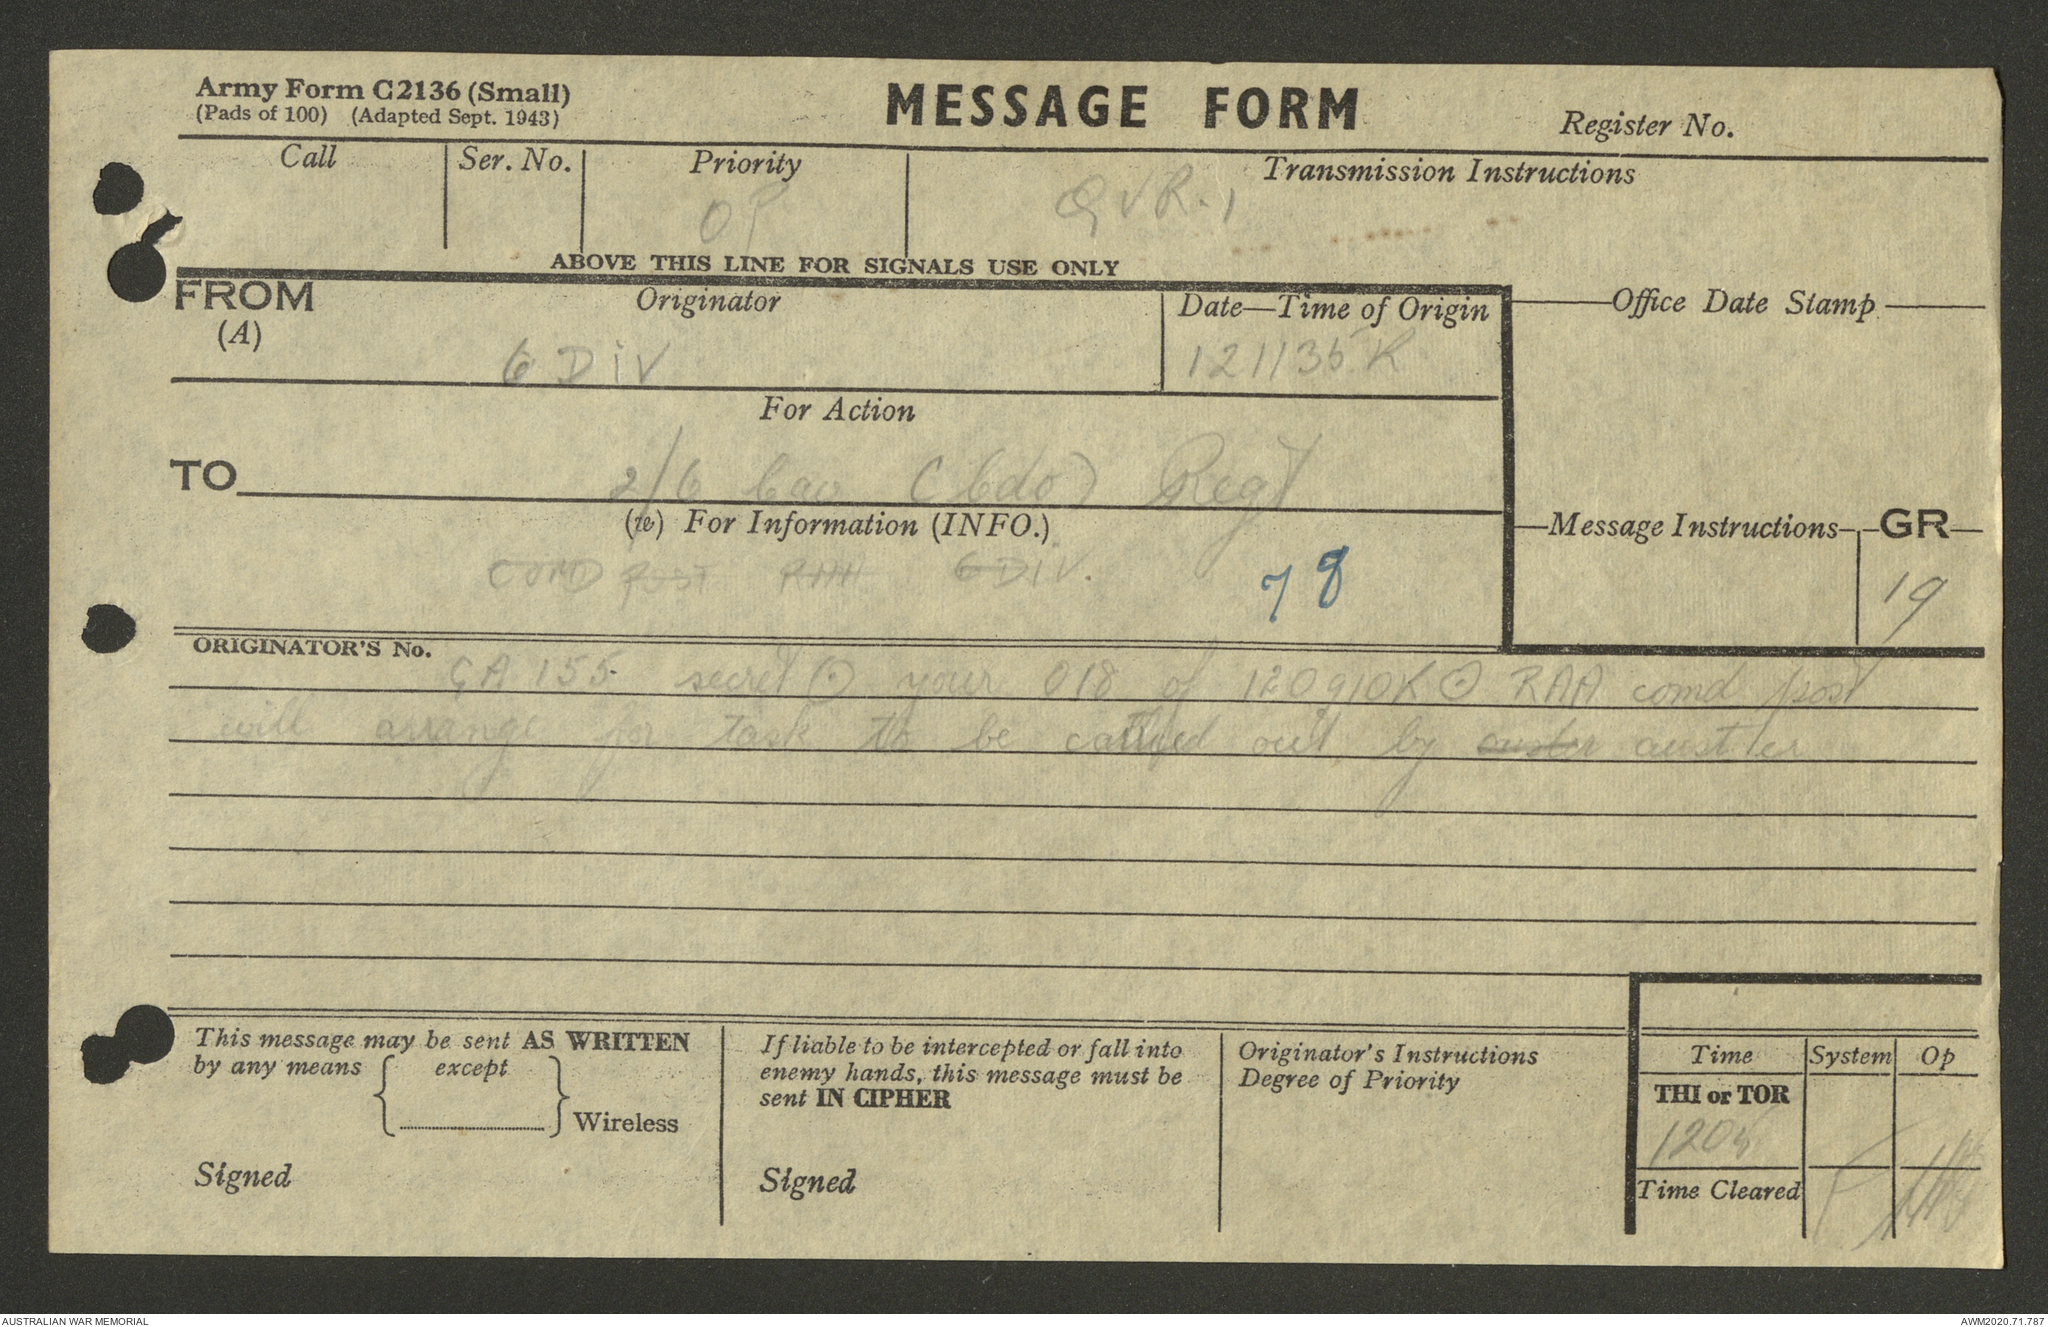 Army Form C2136 (Small)
(Pads of 100) (Adapted Sept. 1943)
MESSAGE FORM
Register No.
Call
Ser. No.
Priority
OP
Transmission Instructions
QVR.1
ABOVE THIS LINE FOR SIGNALS USE ONLY
FROM
(A)
Originator
6 DIV
Date—Time of Origin
121135K
Office Date Stamp
For Action
TO
2/6 Cav (Cdo) Regt
(W) For Information (INFO.)
COMD POST RAA 6 DIV.
78
Message Instructions
GR
19
ORIGINATOR'S No.
GA 155 secret ⊙ your 018 of 120910K ⊙ RAA comd post
will arrange for task to be carried out by auster austter
This message may be sent AS WRITTEN
by any means { except } Wireless
Signed
If liable to be intercepted or fall into
enemy hands, this message must be
sent IN CIPHER
Signed
Originator's Instructions
Degree of Priority
Time
System
Op
THI or TOR
1205
Time Cleared
AUSTRALIAN WAR MEMORIAL
AWM2020.71.787